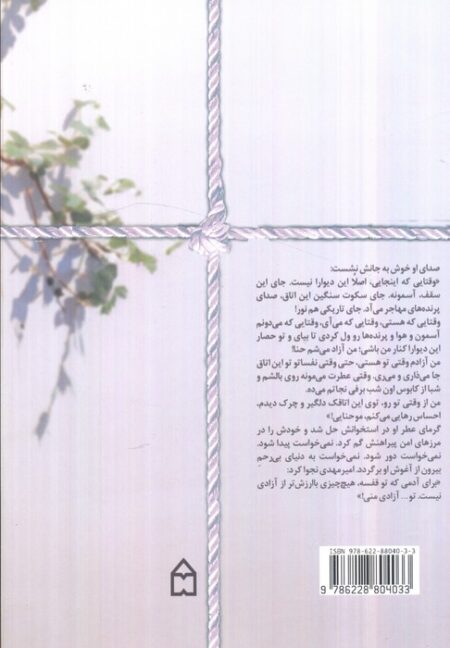 صدای او خوش به جانش نشست:
«وقتایی که اینجایی، اصلا این دیوارا نیست. جای این
سقف، آسمونه. جای سکوت سنگین این اتاق، صدای
پرنده‌های مهاجر می‌آد. جای تاریکی هم نور!
وقتایی که هستی، وقتایی که می‌آی، وقتایی که می‌دونم
آسمون و هوا و پرنده‌ها رو ول کردی تا بیای و تو حصار
این دیوارا کنار من باشی؛ من آزاد می‌شم حنا!
من آزادم وقتی تو هستی، حتی وقتی نفساتو تو این اتاق
جا می‌ذاری و می‌ری. وقتی عطرت می‌مونه روی بالشم و
شبا از کابوس اون شب برفی نجاتم می‌ده.
من از وقتی تو رو، توی این اتاقک دلگیر و چرک دیدم،
احساس رهایی می‌کنم، موحنایی!»
گرمای عطر او در استخوانش حل شد و خودش را در
مرزهای امن پیراهنش گم کرد. نمی‌خواست پیدا شود.
نمی‌خواست دور شود. نمی‌خواست به دنیای بی‌رحمِ
بیرون از آغوش او برگردد. امیرمهدی نجوا کرد:
«برای آدمی که تو قفسه، هیچ‌چیزی باارزش‌تر از آزادی
نیست. تو... آزادی منی!»
ISBN 978-622-88040-3-3
9 786228 804033